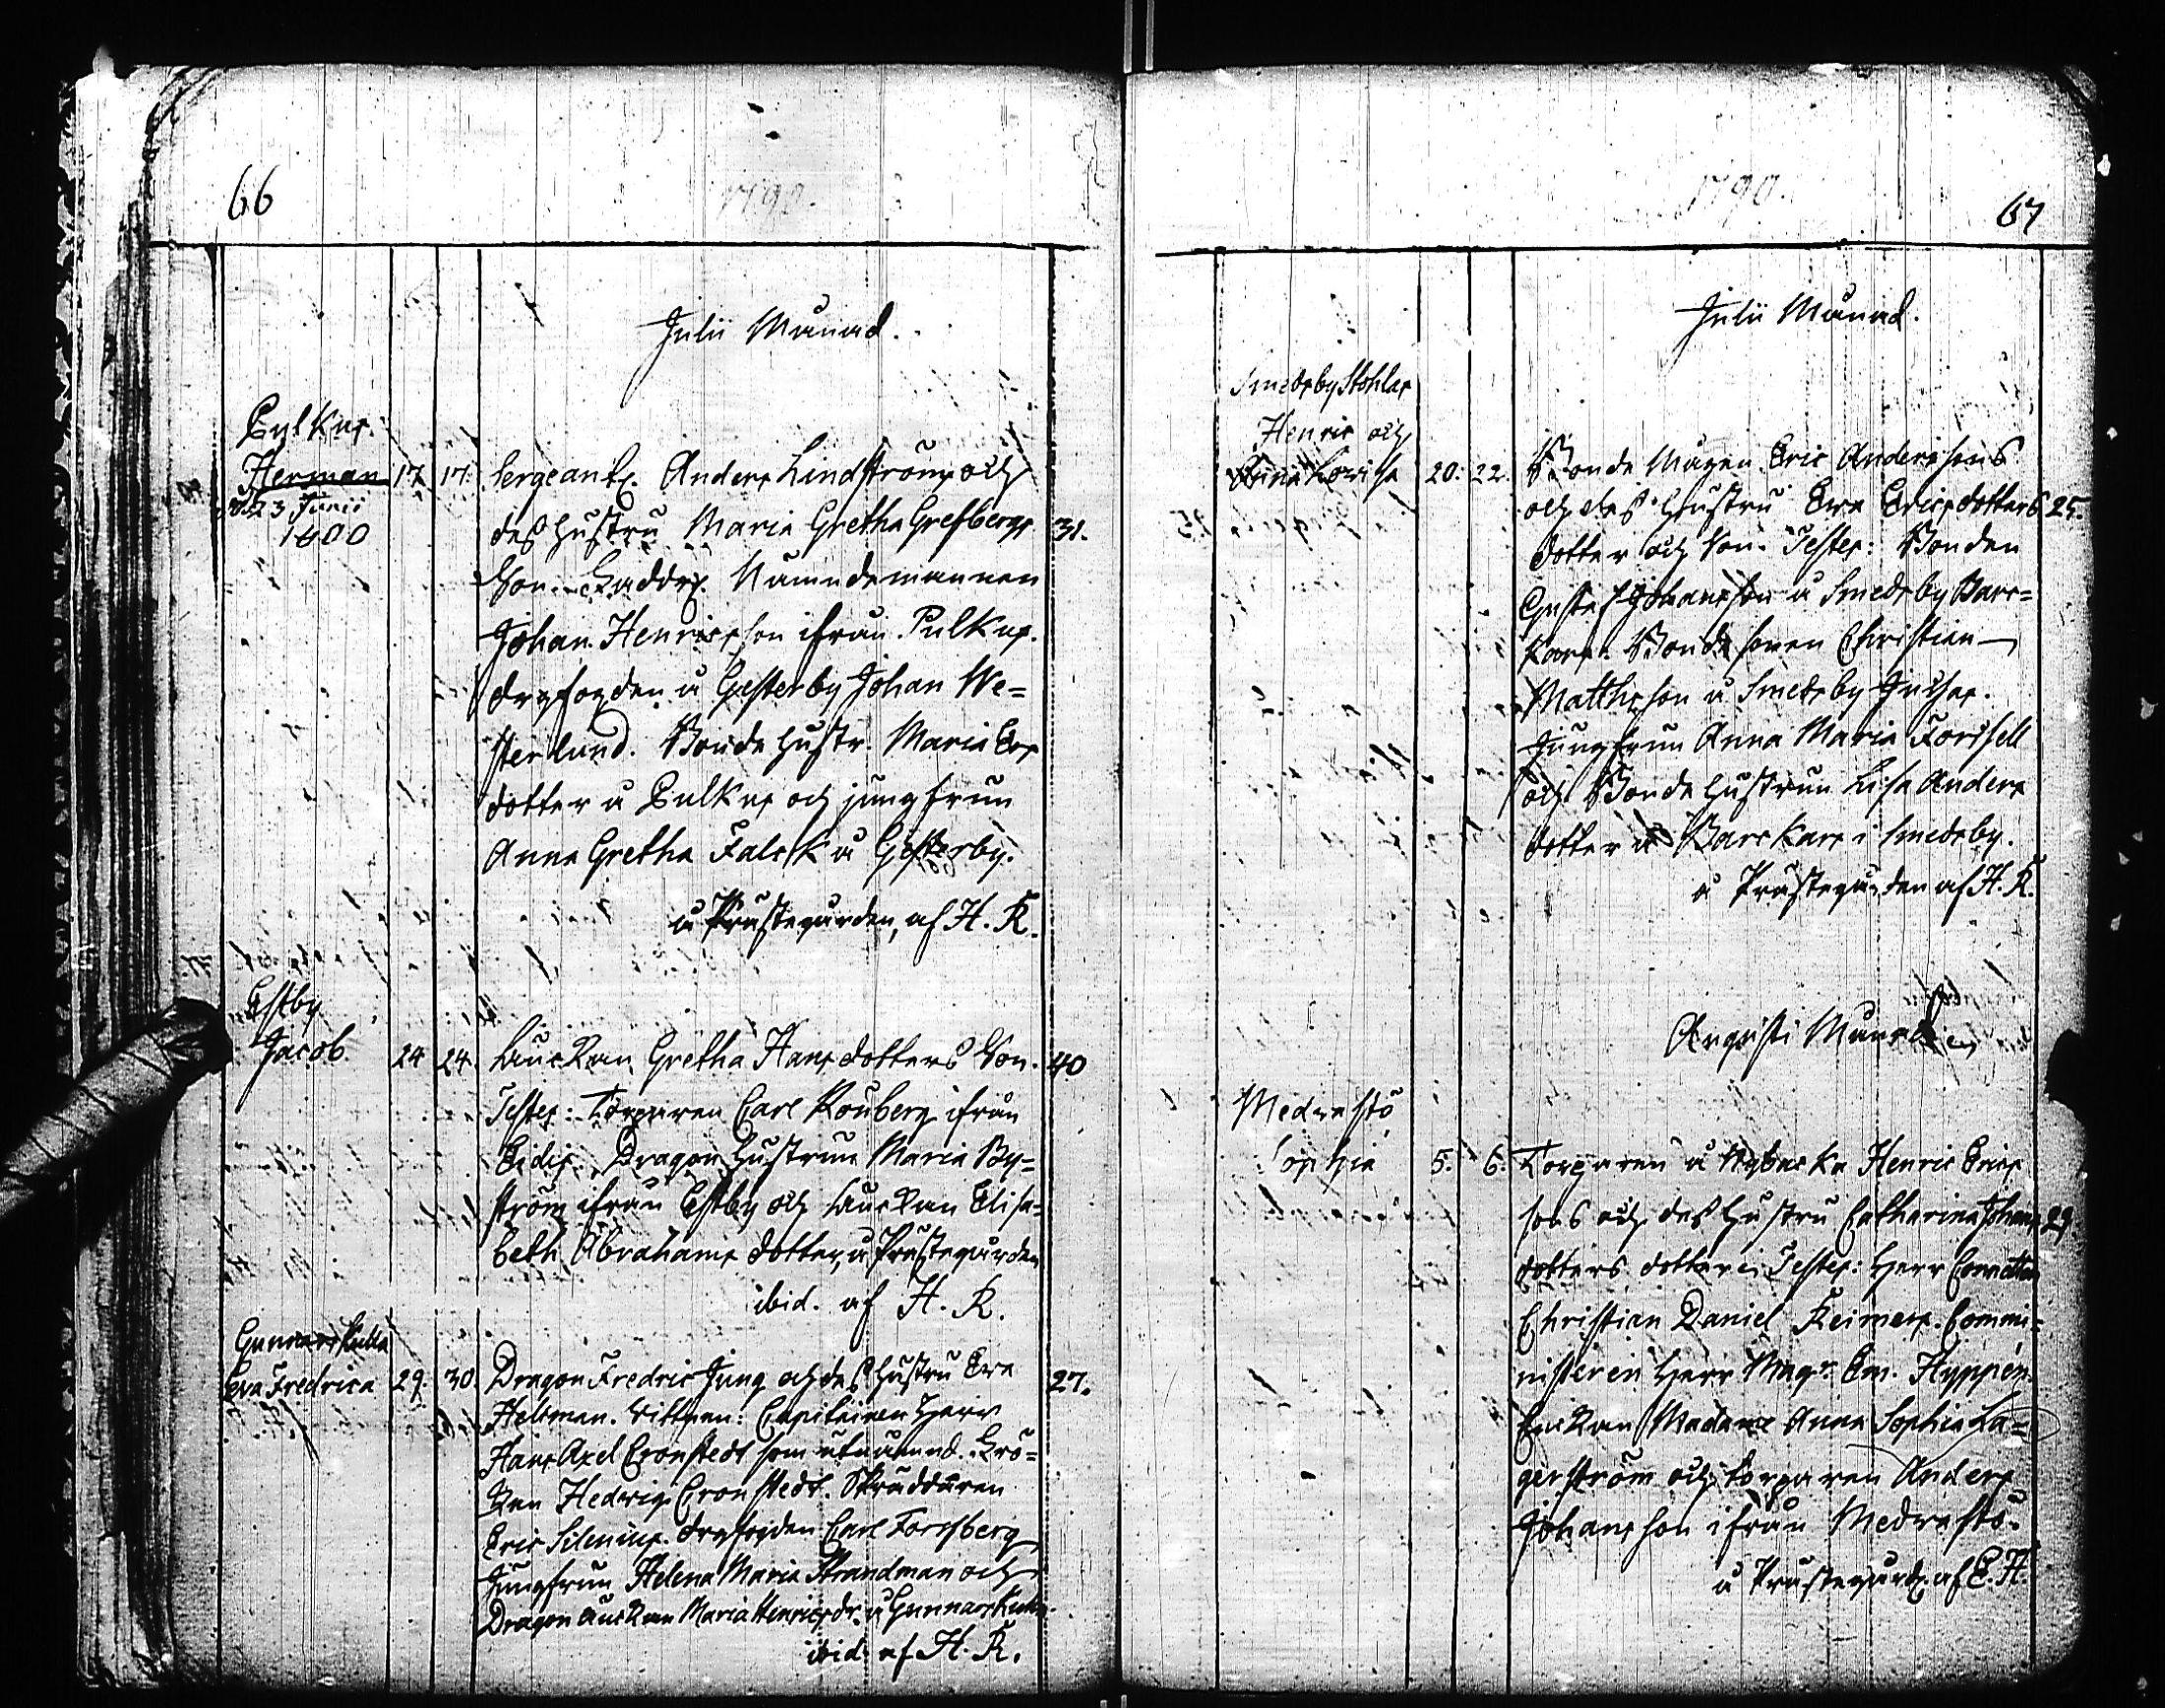 66
1790.
Julii Månad.
Pylkus.
Herman 17 17. Sergeant. Anders Lindströms och
d. 23 Junii
1800
des hustru Maria Gretha Grefbergs 31.
Son. Faddr. Nämndemannen
Johan Henricsson ifrån Pulkus.
drgfogden å Gesterby Johan We=
sterlund. Bonde hustr. Maria Ers
dotter å Pulkus och jungfrun
Anna Gretha Falck å Gesterby.
å Prästegården, af H. K.
Estby
Jacob 24 24. Änckan Gretha Hansdotters Son. 40
Testes: Torparen Carl Rouberg ifrån
Eidis. Dragon hustrun Maria By=
ström ifrån Estby och änckan Elisa=
beth Abrahams dotter, å Prästegården
ibid. af H. K.
Gunnarskulla
Eva Fredrica 29. 30. Dragon Fredric Jung och des hustru Eva 27.
Heltman. Vittnen: Capitainen Herr
Hans Axel Cronstedt som utnämnd. Frö=
ken Hedwig Cronstedt. Skräddaren
Eric Silenius. drgfogden Carl Forssberg
Jungfrun Helena Maria Strandman och
Dragon änckan Maria Henricsdr. å Gunnarskulla.
ibid. af H. K.
1790.
67
Julii Månad.
Smedsby Stohlas
Henric och
Anna Lovisa 20. 22. Bonde Mågen Eric Anderssons
och des hustru Eva Ericsdotters 25.
dotter och Son. Testes: Bonden
Gustaf Johansson å Smedsby Bars=
kars. Bondesonen Christian
Matthsson å Smedsby Juthas.
Jungfrun Anna Maria Forssell
och Bonde hustrun Lisa Anders
dotter å Barskars i Smedsby.
å Prästegården af H. K.
Augusti Månad
Medvastö
Sophia 5. 6. Torparen å Nybacka Henric Erics
sons och des hustru Catharina Johans 29.
dotters dotter. Testes: Herr Cornetten
Christian Daniel Reimers. Commi=
nisteren Herr Magr. Em. Hyppén.
Enckan Madame Anna Sophia La=
gerström och torparen Anders
Johansson ifrån Medvastö.
å Prästegård. af E. H.